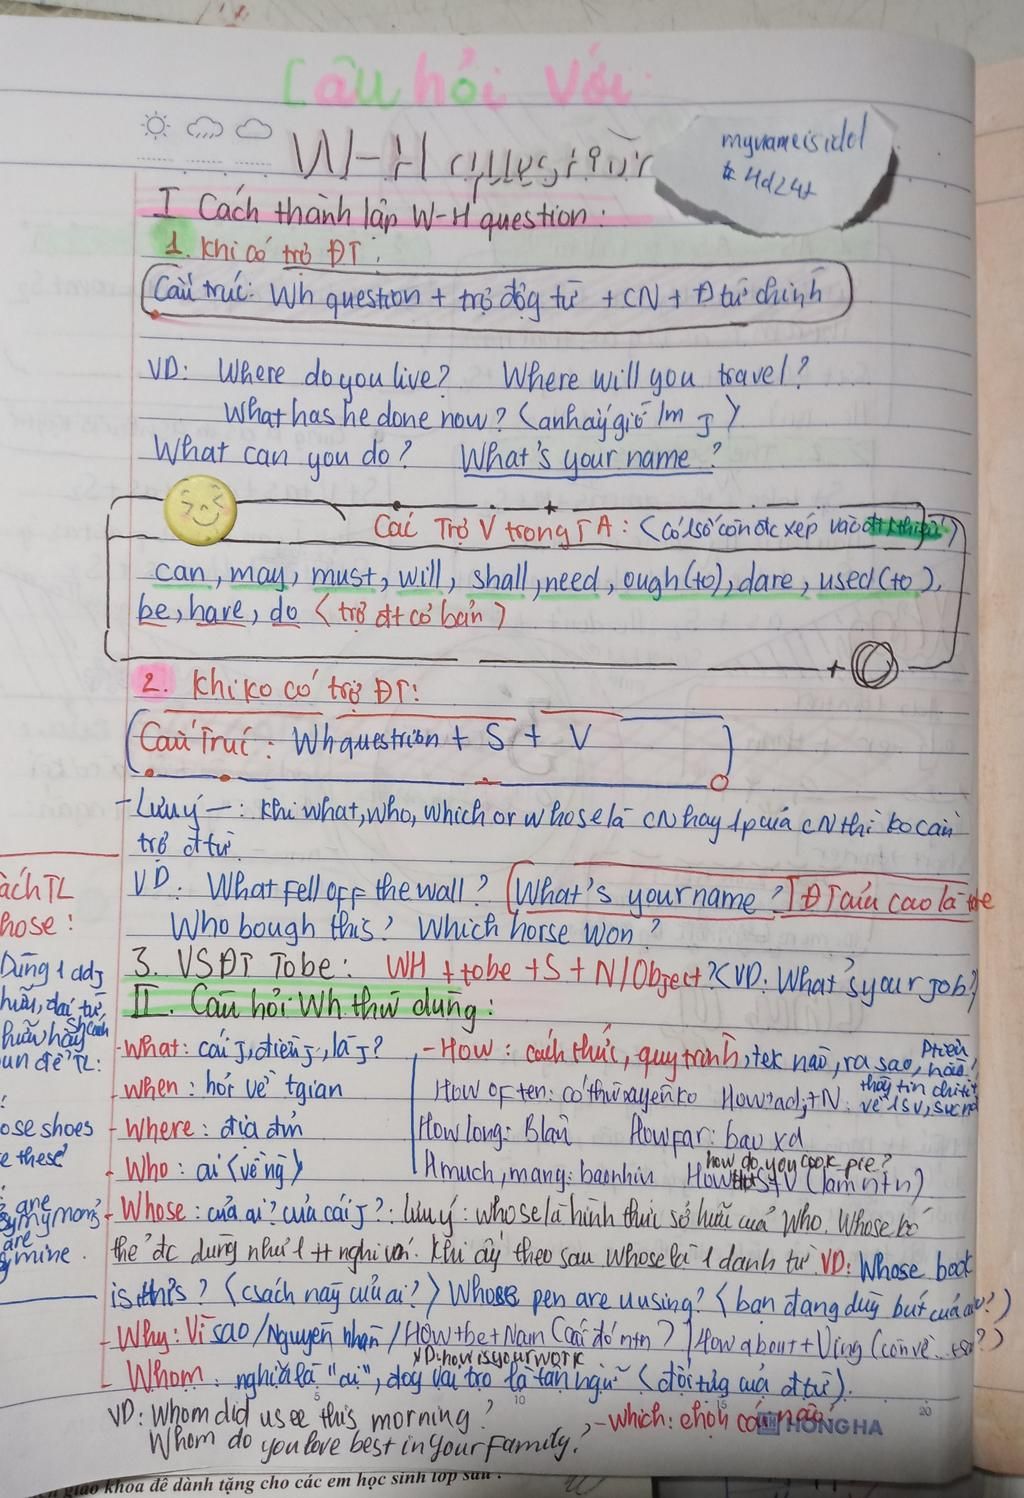 Câu hỏi với
W-H question
mynameisidol
# 4d24t
I Cách thành lập W-H question:
1. Khi có trợ ĐT:
Cấu trúc: Wh question + trợ độg từ + CN + Đ từ chính
VD: Where do you live? Where will you travel?
What has he done now? (anh ấy giờ lm j)
What can you do? What's your name?
Các Trợ V trong TA: (có 1 số còn đc xếp vào đt khiếm)
can, may, must, will, shall, need, ough(to), dare, used(to),
be, have, do (trợ đt cơ bản)
2. Khi ko có trợ ĐT:
Cấu Trúc: Wh question + S + V
- Lưu ý -: Khi what, who, which or whose là CN hay 1 p của CN thì ko cần
trợ đ từ.
VD: What fell off the wall? What's your name? ĐT ấu cao là tobe
Who bough this? Which horse won?
3. VS ĐT Tobe: WH + tobe + S + N/Object? (VD: What's your job?)
II. Câu hỏi Wh thườ dùng:
- What: cái j, điều j, là j? - How: cách thức, quy trình, ntn nào, ra sao,
- When: hỏi về tgian How often: có thườ xuyên ko How+adj+N:
- Where: địa đ' How long: Blâu How far: bao xa
- Who: ai (về ng) H much, many: baonhiu How S+V (làm ntn)
how do you cook pie?
- Whose: của ai? của cái j?: Lưu ý: whose là hình thức sở hữu của Who. Whose
thể đc dùng như 1 tt nghi vấn. Khi ấy theo sau Whose là 1 danh từ VD: Whose book
is this? (csách này của ai?) Whose pen are u using? (bạn đang dùg bút của ai?)
- Why: Vì sao/Nguyên nhân/How+be+Nam (cái đó ntn?) How about+Ving (còn về
VD: how is your work
- Whom: nghĩa là "ai", đóg vai trò là tân ngữ (đối tượg của đ từ).
VD: Whom did u see this morning? - Which: chọn cái nào?
Whom do you love best in your family?
HONG HA
5 10 15 20
ách TL
hose:
Dùng 1 adj
hữu, đại từ,
ose shoes
e these?
are
my mom's
are
mine.
khoa để dành tặng cho các em học sinh lớp sau.